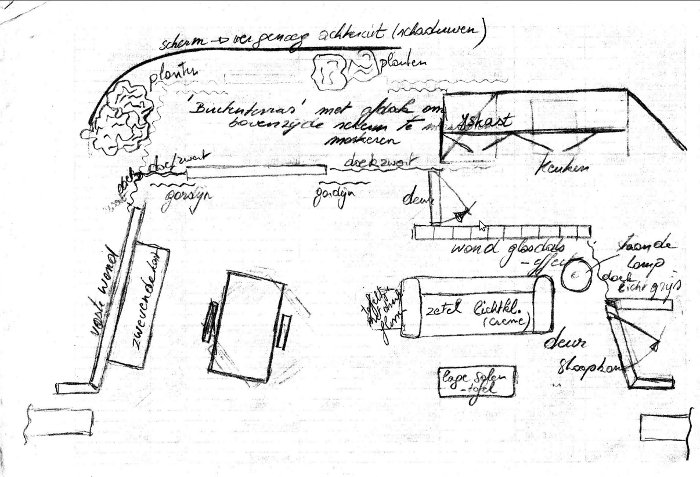 scherm → ver genoeg achteruit (schaduwen)
planten
planten
'Buitenterras' met afdak om
bovenzijde scherm te
maskeren
Ijskast
keuken
doek zwart
doek zwart
gordijn
gordijn
deur
wand glasdals
-effect
staande
lamp
doek
licht grijs
vaste wand
zwevende kast
zetel lichtkl.
(creme)
deur
slaapkam
lage salon
-tafel